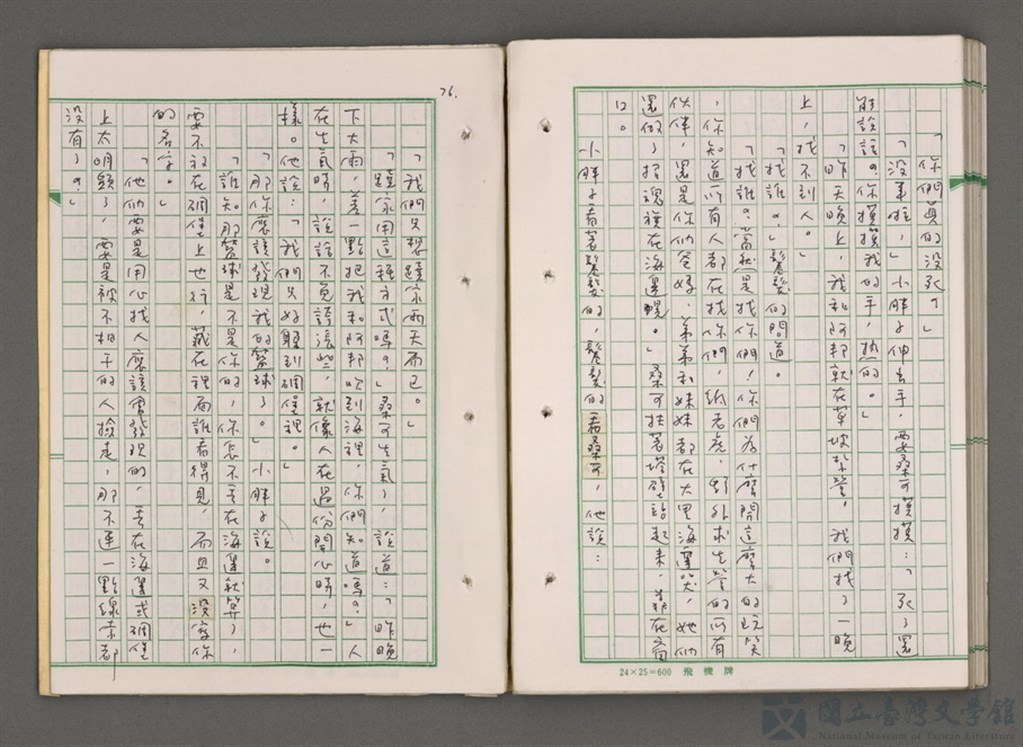 「你們真的沒死？」
「沒事啦，」小胖子伸出手，要桑可摸摸：「死了還
能說話？你摸摸我的手，熱的。」
「昨天晚上，我和阿邦就在草坡紮營，我們找了一晚
上，找不到人。」
「找誰？」髮髮的問道。
「找誰？當然是找你們！你們為什麼開這麼大的玩笑
，你知道所有人都在找你們，紙老虎，野外求生營的所有
伙伴，還是你們爸媽、弟弟和妹妹都在大里海邊哭，她們
還做了招魂旗在海邊晃。」桑可扶著塔壁站起來，靠在窗
口。
小胖子看著髮髮的，髮髮的看桑可，他說：
76.
「我們只想躲家兩天而已。」
「躲家用這種方式嗎？」桑可生氣了，說道：「昨晚
下大雨，差一點把我和阿邦吹到海裡，你們知道嗎？」人
在生氣時，說話不免誇張些，就像人在過份開心時，也一
樣。他說：「我們只好躲到碉堡裡。」
「那你應該發現我的籃球了。」小胖子說。
「誰知那籃球是不是你的，你怎不丟在海邊就算了，
要不放在碉堡上也行，藏在裡面誰看得見，而且又沒寫你
的名字。」
「他們要是用心找人應該會發現的，丟在海邊或碉堡
上太明顯了，要是被不相干的人撿走，那不連一點線索都
沒有了？」
24×25=600 飛機牌
國立臺灣文學館
National Museum of Taiwan Literature